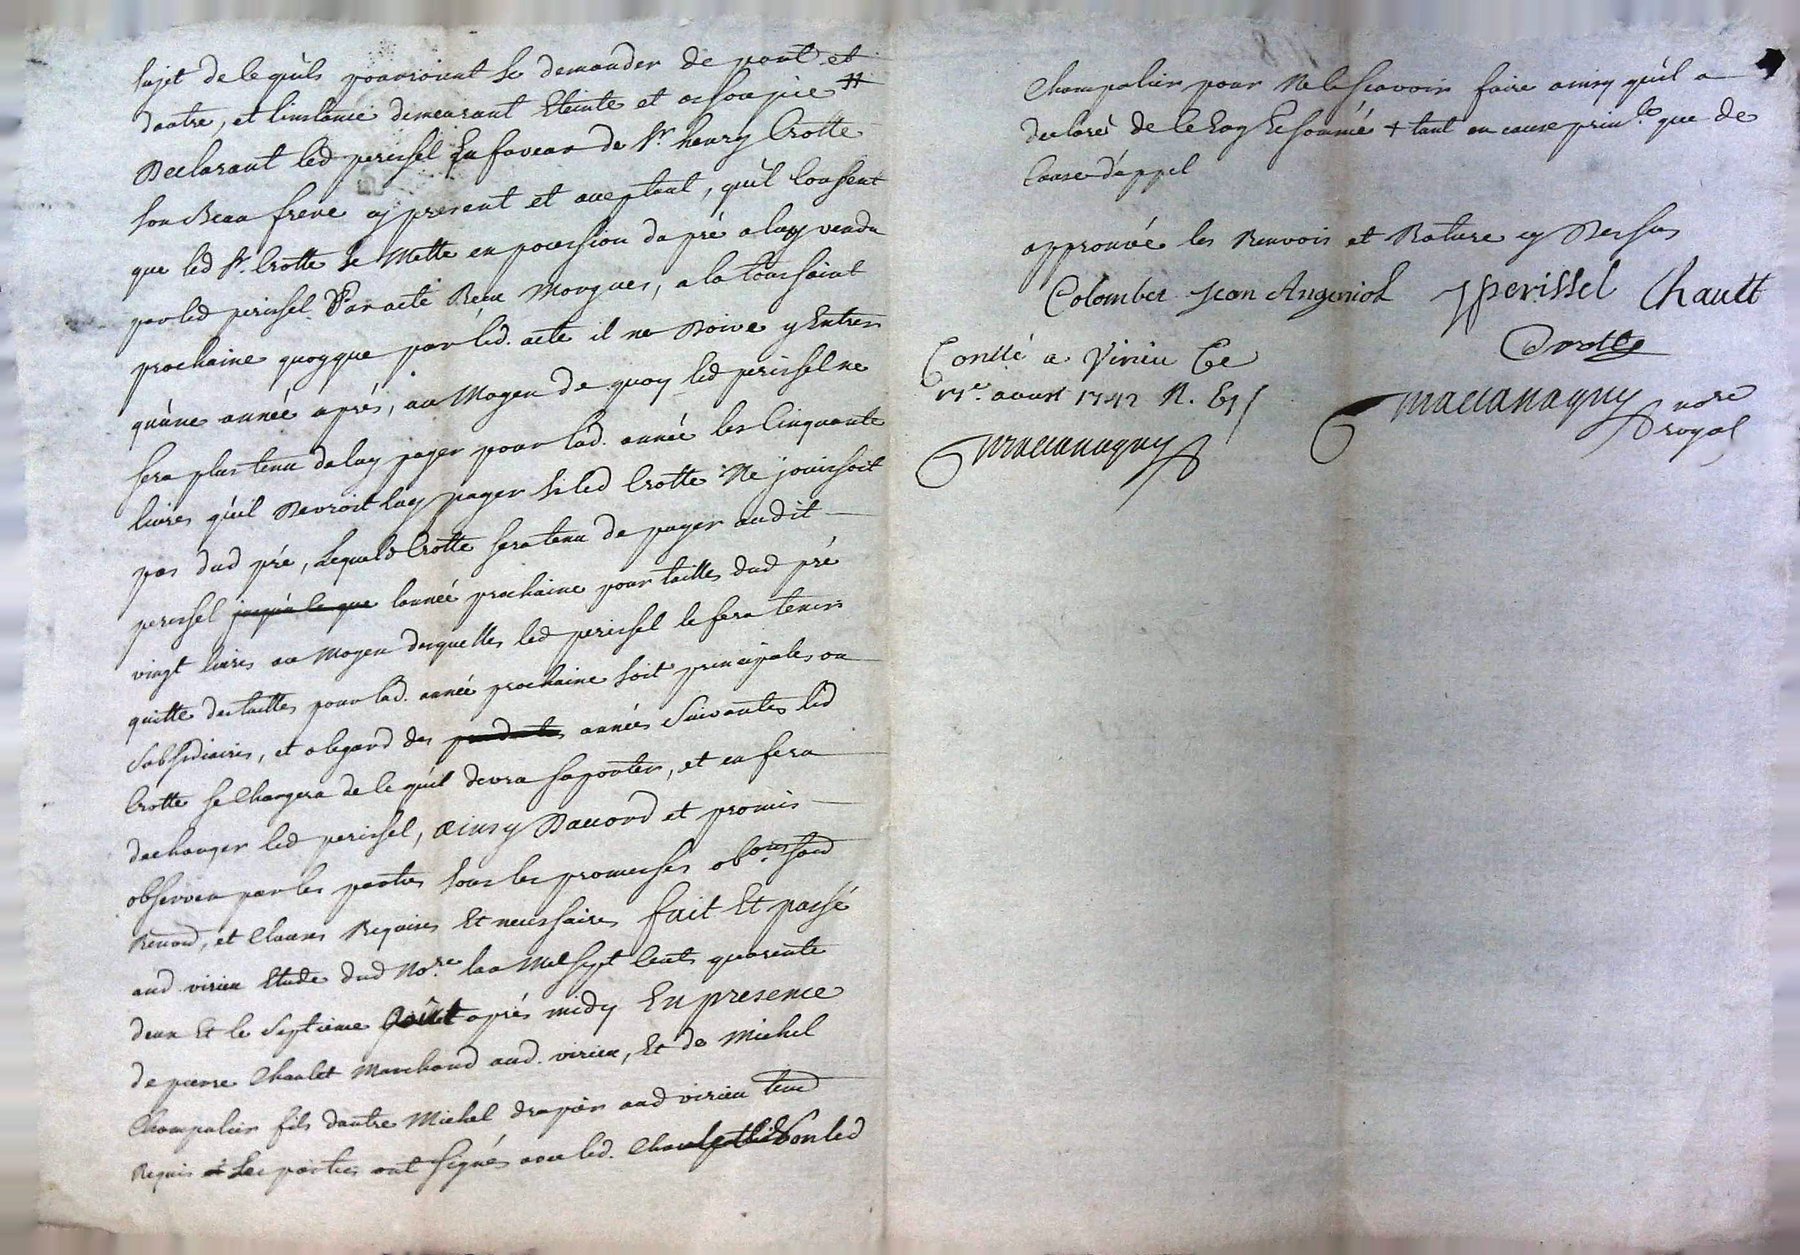 sujet de ce quils pourroient se demander de part et
dautre, et linstance demeurant Eteinte et assoupie #
Declarant led perissel En faveur de Sr. henry Crotte
son Beau frere cy present et acceptant, quil consent
que led Sr. Crotte se Mette en pocession du pré a luy vendu
par led perissel Par acte Receu Morgues, a la toussaint
prochaine quoyque par led. acte il ne Doive y Entrer
qu'une année aprés, au Moyen de quoy led perissel ne
sera plus tenu de luy payer pour lad. année les Cinquante
livres qu'il Devroit luy payer si led Crotte Ne jouissoit
pas dud pré, Lequel Crotte sera tenu de payer audit
perissel jusqu'a ce que lannée prochaine pour tailles dud pré
vingt livres au Moyen desquelles led perissel le fera tenir
quitte des tailles pour lad. année prochaine soit principales ou
subsidiaires, et a legard des années suivantes led
Crotte se Chargera de ce quil devra suporter, et en fera
decharger led perissel, ainsy Daccord et promis
observer par les parties sous les promesses obons. foud
Renond, et Clauses Requises Et necessaires fait Et passé
aud virieu Etude dud Nore. lan Mil sept Cents quarente
deux Et le septieme Aoust aprés midy En presence
de pierre Chaulet Marchand aud. virieu, Et de Michel
Champalier fils dautre Michel drapier aud virieu temd
Requis Les parties ont signés avec led. non led
Champalier pour Ne le scavoir faire ainsy quil a
declaré de ce Enq Et sommé + tant en cause prinle. que de
Cause d'appel
approuvée les Renvois et Rature cy Dessus
Colombet Jean Angeniol perissel Chault
Crotte
Conllé a Virieu Ce
17e. aoust 1742 R.
Maccanaguy nore
royal
Maccanaguy